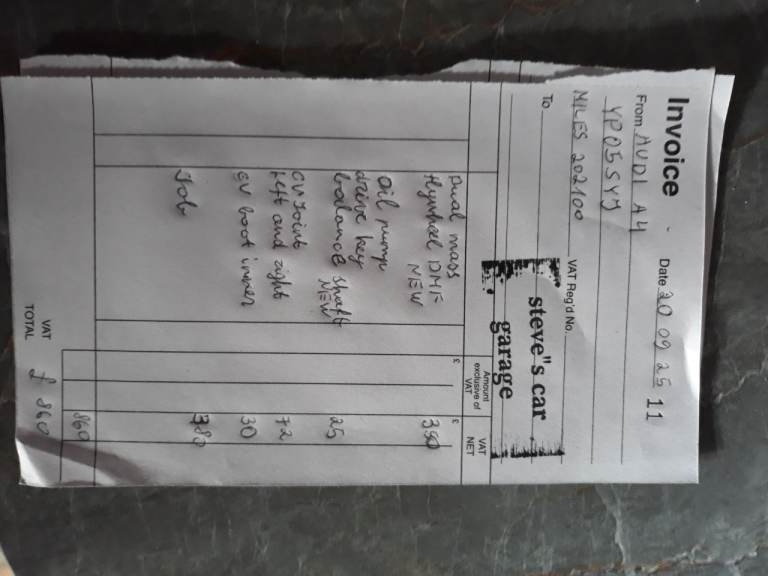 Invoice
From AUDI A4 Date 20 09 25 11
YP05SYJ
MILES 202100 VAT Reg'd No.
To steve"s car
garage
Amount exclusive of VAT VAT NET
£ £
Dual mass
flywheel DMF
NEW 350
Oil pump
drive key
balance shaft
NEW 25
CV Joint
Left and right 72
CV boot inner 30
Job 380
860
VAT
TOTAL £ 860